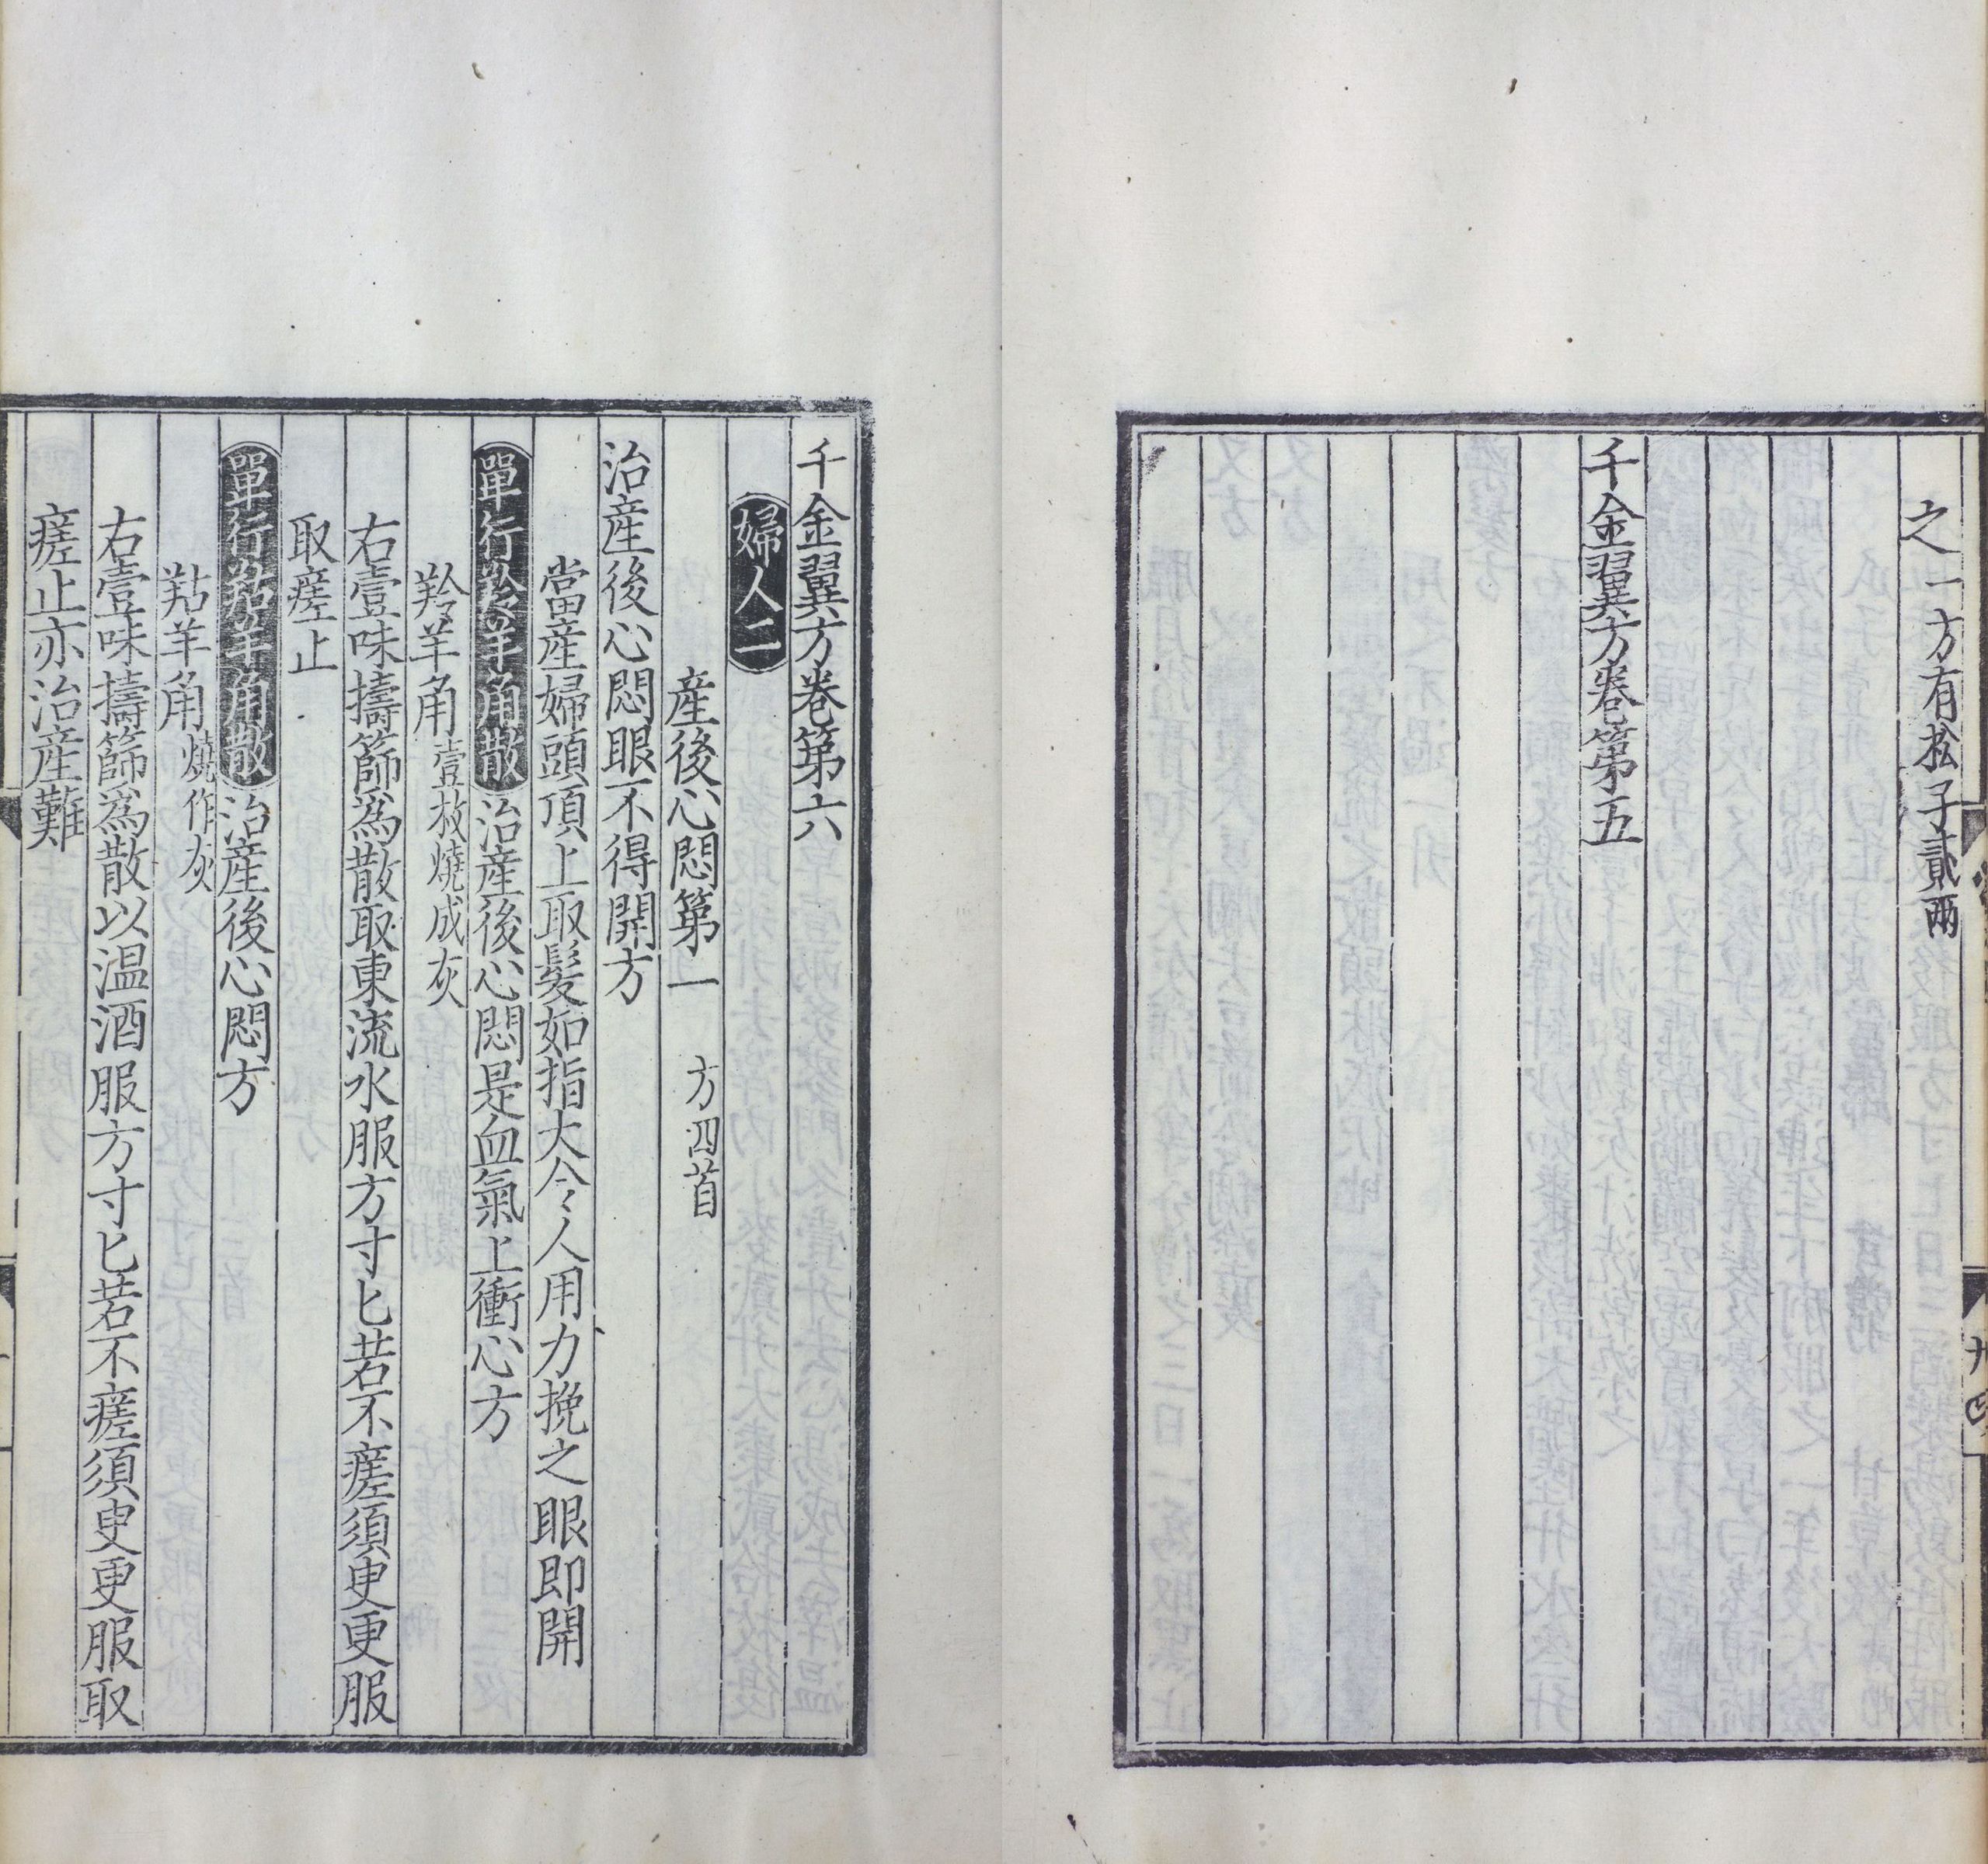 之一方有松子貳兩
千金翼方卷第五
千金翼方卷第六
婦人二
產後心悶第一 方四首
治產後心悶眼不得開方
當產婦頭頂上取髮如指大令人用力挽之眼即開
單行羚羊角散治產後心悶是血氣上衝心方
羚羊角壹枚燒成灰
右壹味擣篩爲散取東流水服方寸匕若不瘥須臾更服
取瘥止
單行羖羊角散治產後心悶方
羖羊角燒作灰
右壹味擣篩爲散以温酒服方寸匕若不瘥須臾更服取
瘥止亦治產難